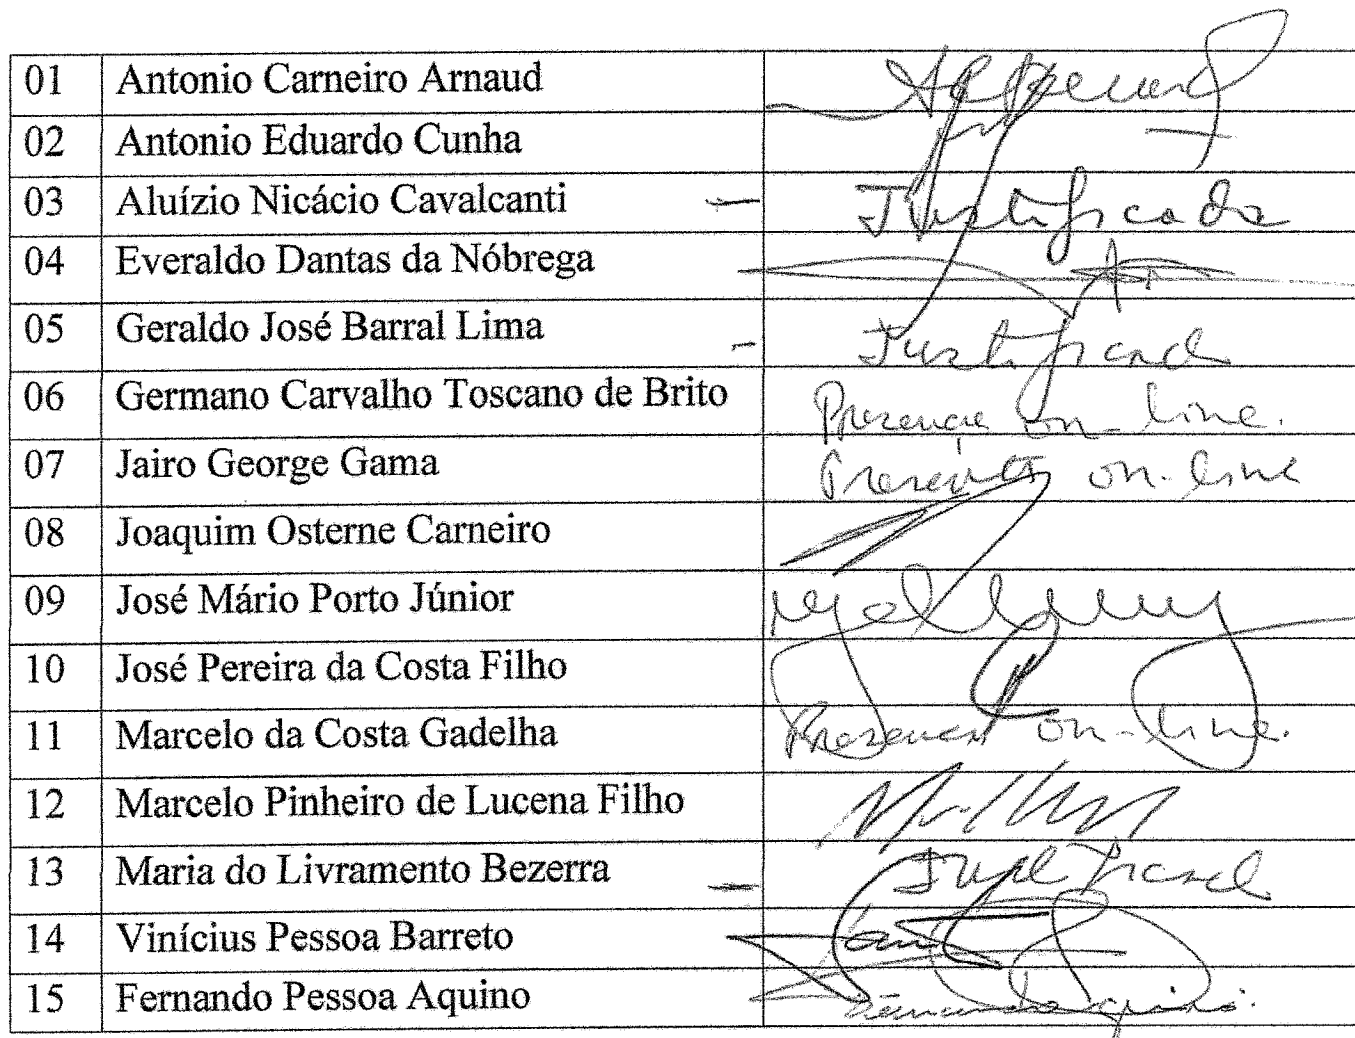 01 Antonio Carneiro Arnaud
02 Antonio Eduardo Cunha
03 Aluízio Nicácio Cavalcanti - Justificada
04 Everaldo Dantas da Nóbrega
05 Geraldo José Barral Lima - Justificad
06 Germano Carvalho Toscano de Brito Presença on-line.
07 Jairo George Gama Presença on-line
08 Joaquim Osterne Carneiro
09 José Mário Porto Júnior
10 José Pereira da Costa Filho
11 Marcelo da Costa Gadelha Presença on-line.
12 Marcelo Pinheiro de Lucena Filho
13 Maria do Livramento Bezerra -
14 Vinícius Pessoa Barreto
15 Fernando Pessoa Aquino